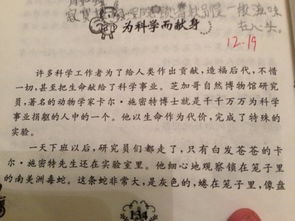 为科学而献身
12.19
许多科学工作者为了给人类作出贡献，造福后代，不惜
一切，甚至把生命献给了科学事业。芝加哥自然博物馆研究
员，著名的动物学家卡尔·施密特博士就是千千万万为科学
事业捐躯的人中的一个。他以生命作为代价，完成了特殊的
实验。
一天下班以后，研究员们都走了，只有白发苍苍的卡
尔·施密特先生还在实验室里。他细心地观察锁在笼子里
的南美洲毒蛇。这条蛇非常大，是灰色的，蜷在笼子里，像盘
134